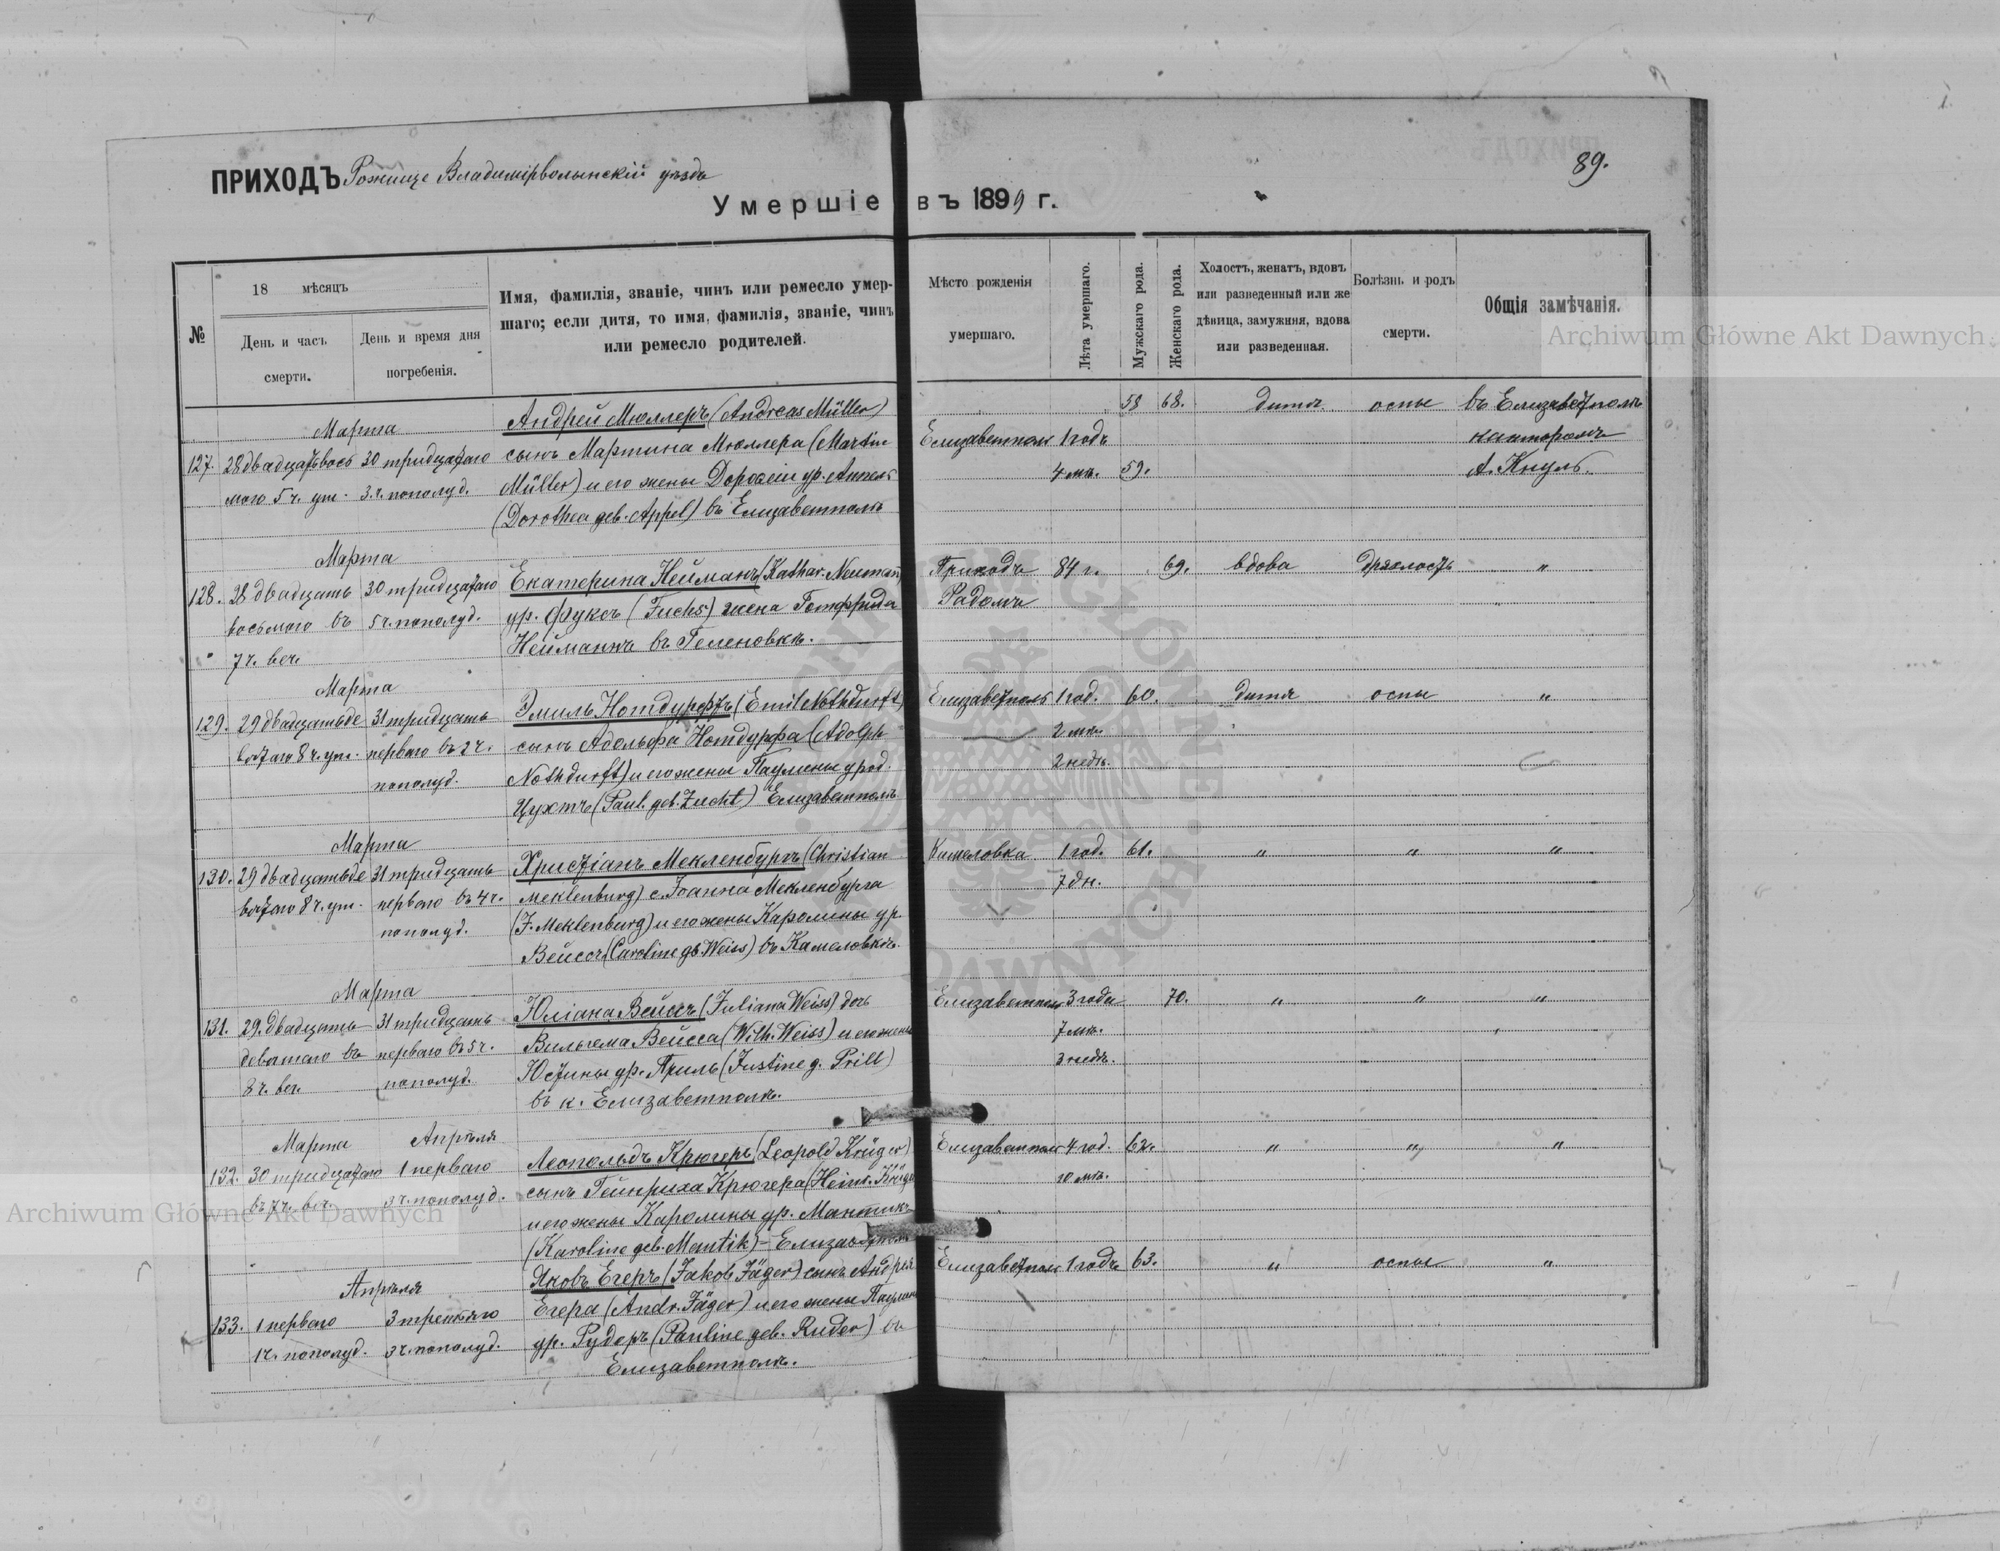 89.
ПРИХОДЪ Рожище Владимірволынскій уѣздъ
Умершіе въ 1899 г.
№
18 мѣсяцъ
День и часъ смерти.
День и время дня погребенія.
Имя, фамилія, званіе, чинъ или ремесло умер-
шаго; если дитя, то имя, фамилія, званіе, чинъ
или ремесло родителей.
Мѣсто рожденія
умершаго.
Лѣта умершаго.
Мужскаго рода.
Женскаго рода.
Холостъ, женатъ, вдовъ
или разведенный или же
дѣвица, замужняя, вдова
или разведенная.
Болѣзнь и родъ
смерти.
Общія замѣчанія.
Archiwum Główne Akt Dawnych
Марта
127. 28 двадцать вось 30 тридцатаго
мого 5 ч. ут. 3 ч. пополуд.
Андрей Мюллеръ (Andreas Müller)
сынъ Мартина Мюллера (Martin
Müller) и его жены Доротеи ур. Аппель
(Dorothea geb. Appel) въ Елизаветполѣ
58 68. дитя оспы въ Елизаветполѣ
Елизаветполь 1 годъ канторомъ
4 мѣ. 59. А. Кнуль.
Марта
128. 28 двадцать 30 тридцатаго
восьмого въ 5 ч. пополуд.
7 ч. веч.
Екатерина Нейманъ (Kathar. Neumann)
ур. Фуксъ (Fuchs) жена Готфрида
Нейманъ въ Геленовкѣ.
Приходъ 84 г. 69. вдова дряхлость "
Радомъ
Марта
129. 29 двадцать де 31 тридцать
вятаго 8 ч. ут. перваго въ 2 ч.
пополуд.
Эмиль Нотдурфтъ (Emil Nothdurft)
сынъ Адольфа Нотдурфа (Adolph
Nothdurft) и его жены Паулины урод.
Цухтъ (Paul. geb. Zucht) въ Елизаветполѣ
Елизаветполь 1 год. 60. дитя оспы "
2 мѣ.
2 недѣ.
Марта
130. 29 двадцать де 31 тридцать
вятаго 8 ч. ут. перваго въ 4 ч.
пополуд.
Христіанъ Мекленбургъ (Christian
Meklenburg) с. Іоанна Мекленбурга
(J. Meklenburg) и его жены Каролины ур.
Вейссъ (Caroline gb Weiss) въ Камеловкѣ.
Камеловка 1 год. 61. " " "
7 дн.
Марта
131. 29. двадцать 31 тридцать
девятаго въ перваго въ 5 ч.
8 ч. веч. пополуд.
Юліана Вейссъ (Juliana Weiss) дочь
Вильгема Вейсса (Wilh. Weiss) и его жены
Юстины ур. Приль (Justine g. Prill)
въ к. Елизаветполѣ.
Елизаветполь 3 года 70. " " "
7 мѣ.
3 недѣ.
Марта Апрѣля
132. 30 тридцатаго 1 перваго
въ 7 ч. веч. 3 ч. пополуд.
Леопольдъ Крюгеръ (Leopold Krüger)
сынъ Гейнриха Крюгера (Heinr. Krüger
и его жены Каролины ур. Мантикъ
(Karoline geb. Mantik) - Елизаветполѣ
Елизаветполь 4 год. 62. " " "
10 мѣ.
Archiwum Główne Akt Dawnych
Апрѣля
133. 1 перваго 3 третьяго
1 ч. пополуд. 3 ч. пополуд.
Яковъ Егеръ (Jakob Jäger) сынъ Андрея
Егера (Andr. Jäger) и его жены Паулины
ур. Рудеръ (Pauline geb. Ruder) въ
Елизаветполѣ.
Елизаветполь 1 годъ 63. " оспы "